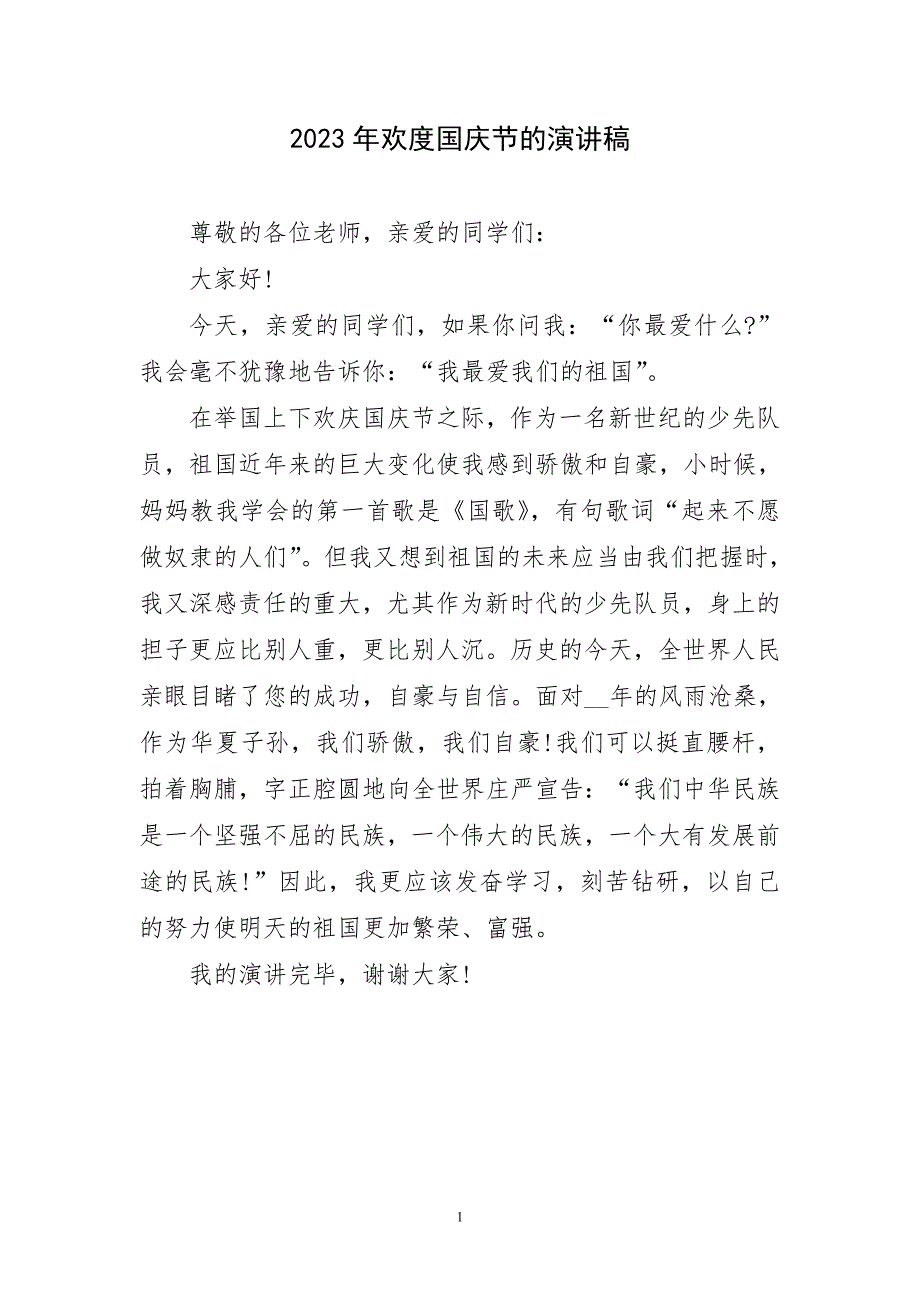 2023年欢度国庆节的演讲稿
尊敬的各位老师，亲爱的同学们：
大家好！
今天，亲爱的同学们，如果你问我：“你最爱什么?”
我会毫不犹豫地告诉你：“我最爱我们的祖国”。
在举国上下欢庆国庆节之际，作为一名新世纪的少先队
员，祖国近年来的巨大变化使我感到骄傲和自豪，小时候，
妈妈教我学会的第一首歌是《国歌》，有句歌词“起来不愿
做奴隶的人们”。但我又想到祖国的未来应当由我们把握时，
我又深感责任的重大，尤其作为新时代的少先队员，身上的
担子更应比别人重，更比别人沉。历史的今天，全世界人民
亲眼目睹了您的成功，自豪与自信。面对__年的风雨沧桑，
作为华夏子孙，我们骄傲，我们自豪！我们可以挺直腰杆，
拍着胸脯，字正腔圆地向全世界庄严宣告：“我们中华民族
是一个坚强不屈的民族，一个伟大的民族，一个大有发展前
途的民族！”因此，我更应该发奋学习，刻苦钻研，以自己
的努力使明天的祖国更加繁荣、富强。
我的演讲完毕，谢谢大家！
1